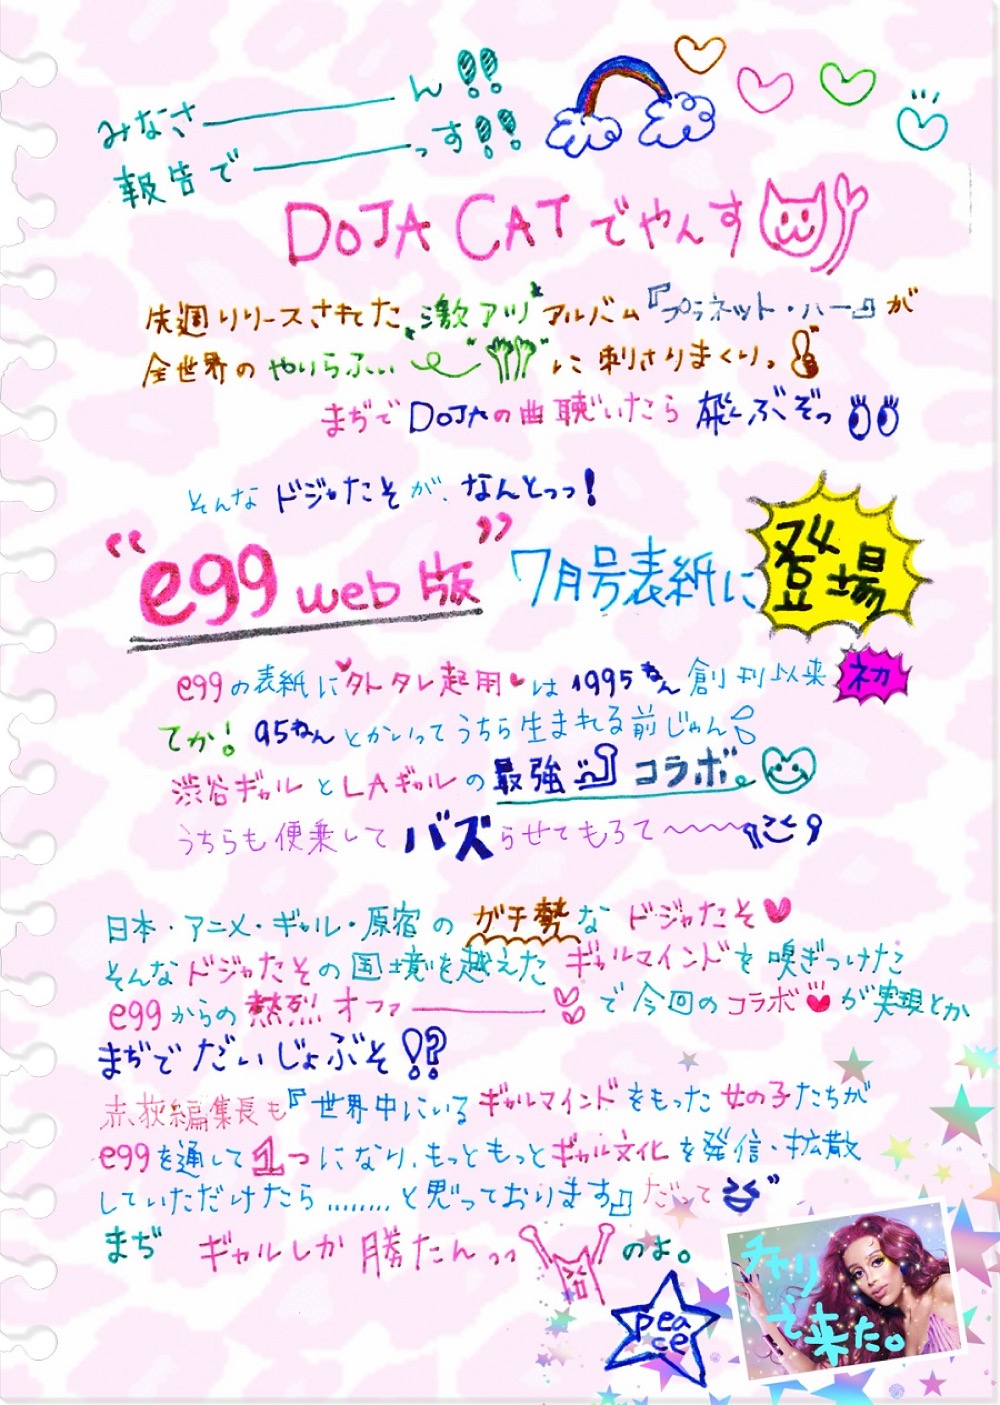 みなさ――――ん!!
報告で――――っす!!
DOJA CATでやんす
先週リリースされた激アツアルバム『プラネット・ハー』が
全世界のやいらふぃ""に刺さりまくり。
まぢでDOJAの曲聴いたら飛ぶぞっ
そんなドジャたそが、なんとっっ!
"egg web版"7月号表紙に登場
eggの表紙に外タレ起用は1995ねん創刊以来初
てか!95ねんとかいってうちら生まれる前じゃん
渋谷ギャルとLAギャルの最強コラボ
うちらも便乗してバズらせてもろて〜〜〜
日本・アニメ・ギャル・原宿のガチ勢なドジャたそ
そんなドジャたその国境を越えたギャルマインドを嗅ぎつけた
eggからの熱烈オファ――――で今回のコラボが実現とか
まぢでだいじょぶそ!?
赤荻編集長も『世界中にいるギャルマインドをもった女の子たちが
eggを通して1つになり、もっともっとギャル文化を発信・拡散
していただけたら........と思っております』だって
まぢ ギャルしか勝たんっっのよ。
peace
チャリで来た。